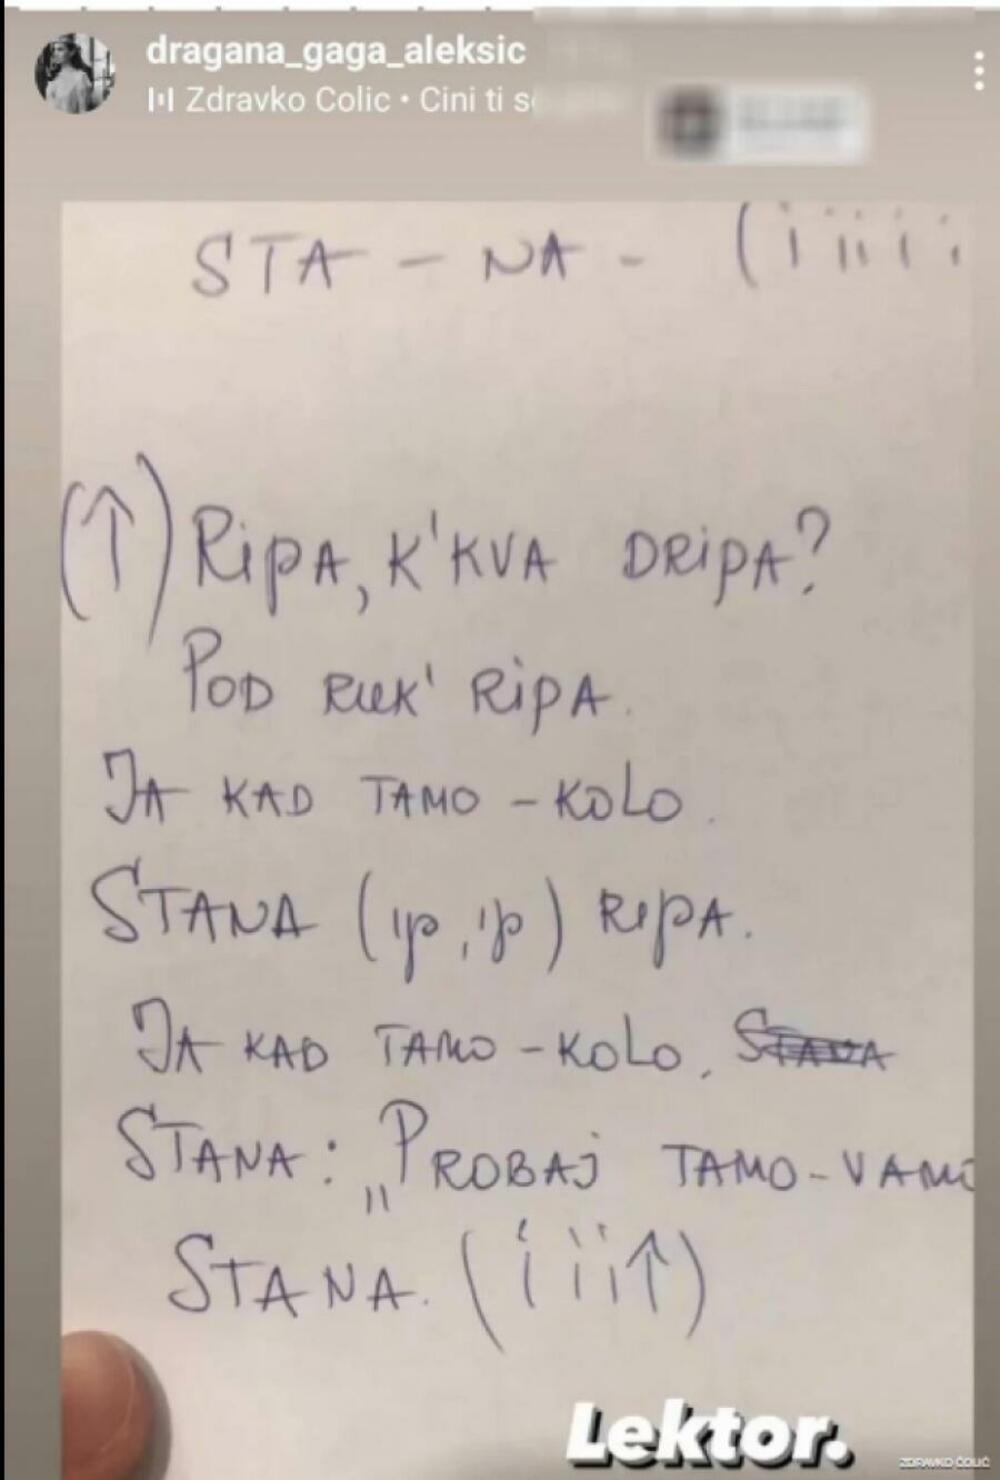 dragana_gaga_aleksic
Zdravko Colic • Cini ti s
STA - NA - (i i i i i
(↑) RiPA, K'KVA DRiPA?
POD RUK' RiPA.
JA KAD TAMO - KOLO.
STANA (ip, ip) RIPA.
JA KAD TAMO - KOLO. STANA
STANA: „PROBAJ TAMO - VAMO
STANA. (i i i ↑)
Lektor.
ZDRAVKO ČOLIĆ